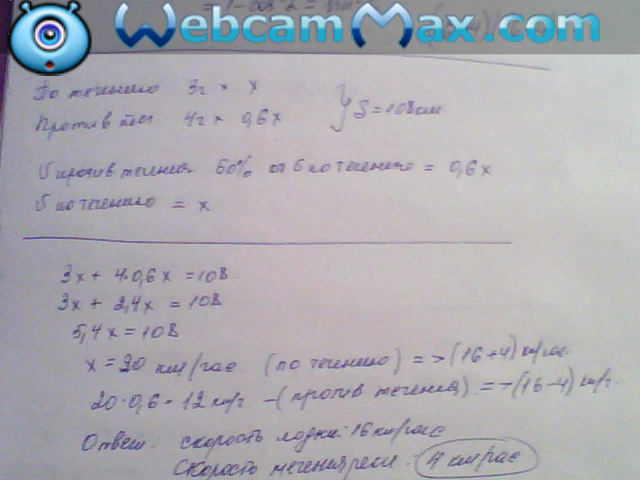 WebcamMax.com
= 1 -
По течению 3ч х х
Против теч 4ч х 0,6х } S = 108 км
V против течения 60% от V по течению = 0,6х
V по течению = х
3х + 4·0,6х = 108
3х + 2,4х = 108
5,4х = 108
х = 20 км/час (по течению) => (16+4) км/час
20·0,6 = 12 км/ч - (против течения) => (16-4) км/ч.
Ответ: скорость лодки - 16 км/час
Скорость течения реки - 4 км/час